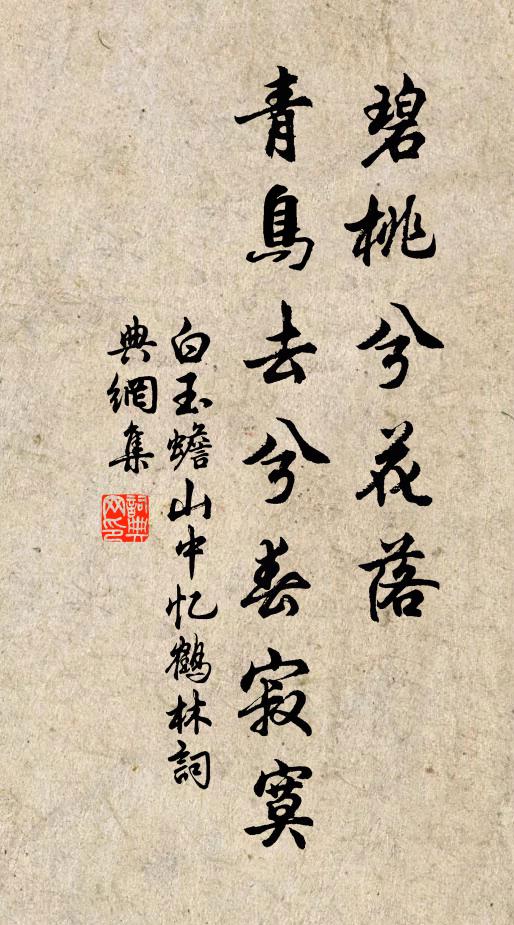 碧桃兮花落
青鳥去兮春寂寞
白玉蟾山中忆鶴林詞
典網集
詞典网印